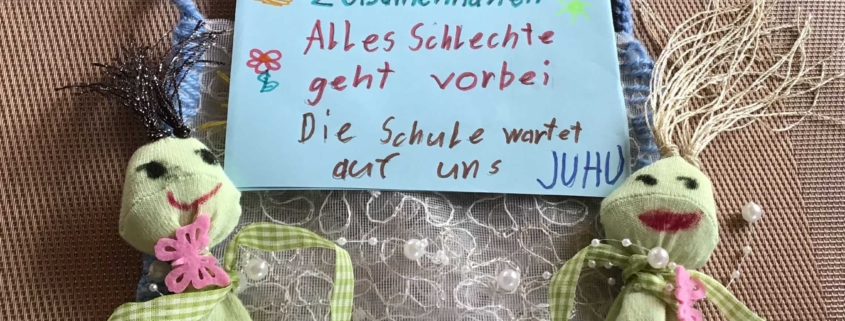 Zusammenhalten
Alles Schlechte
geht vorbei
Die Schule wartet
auf uns JUHU